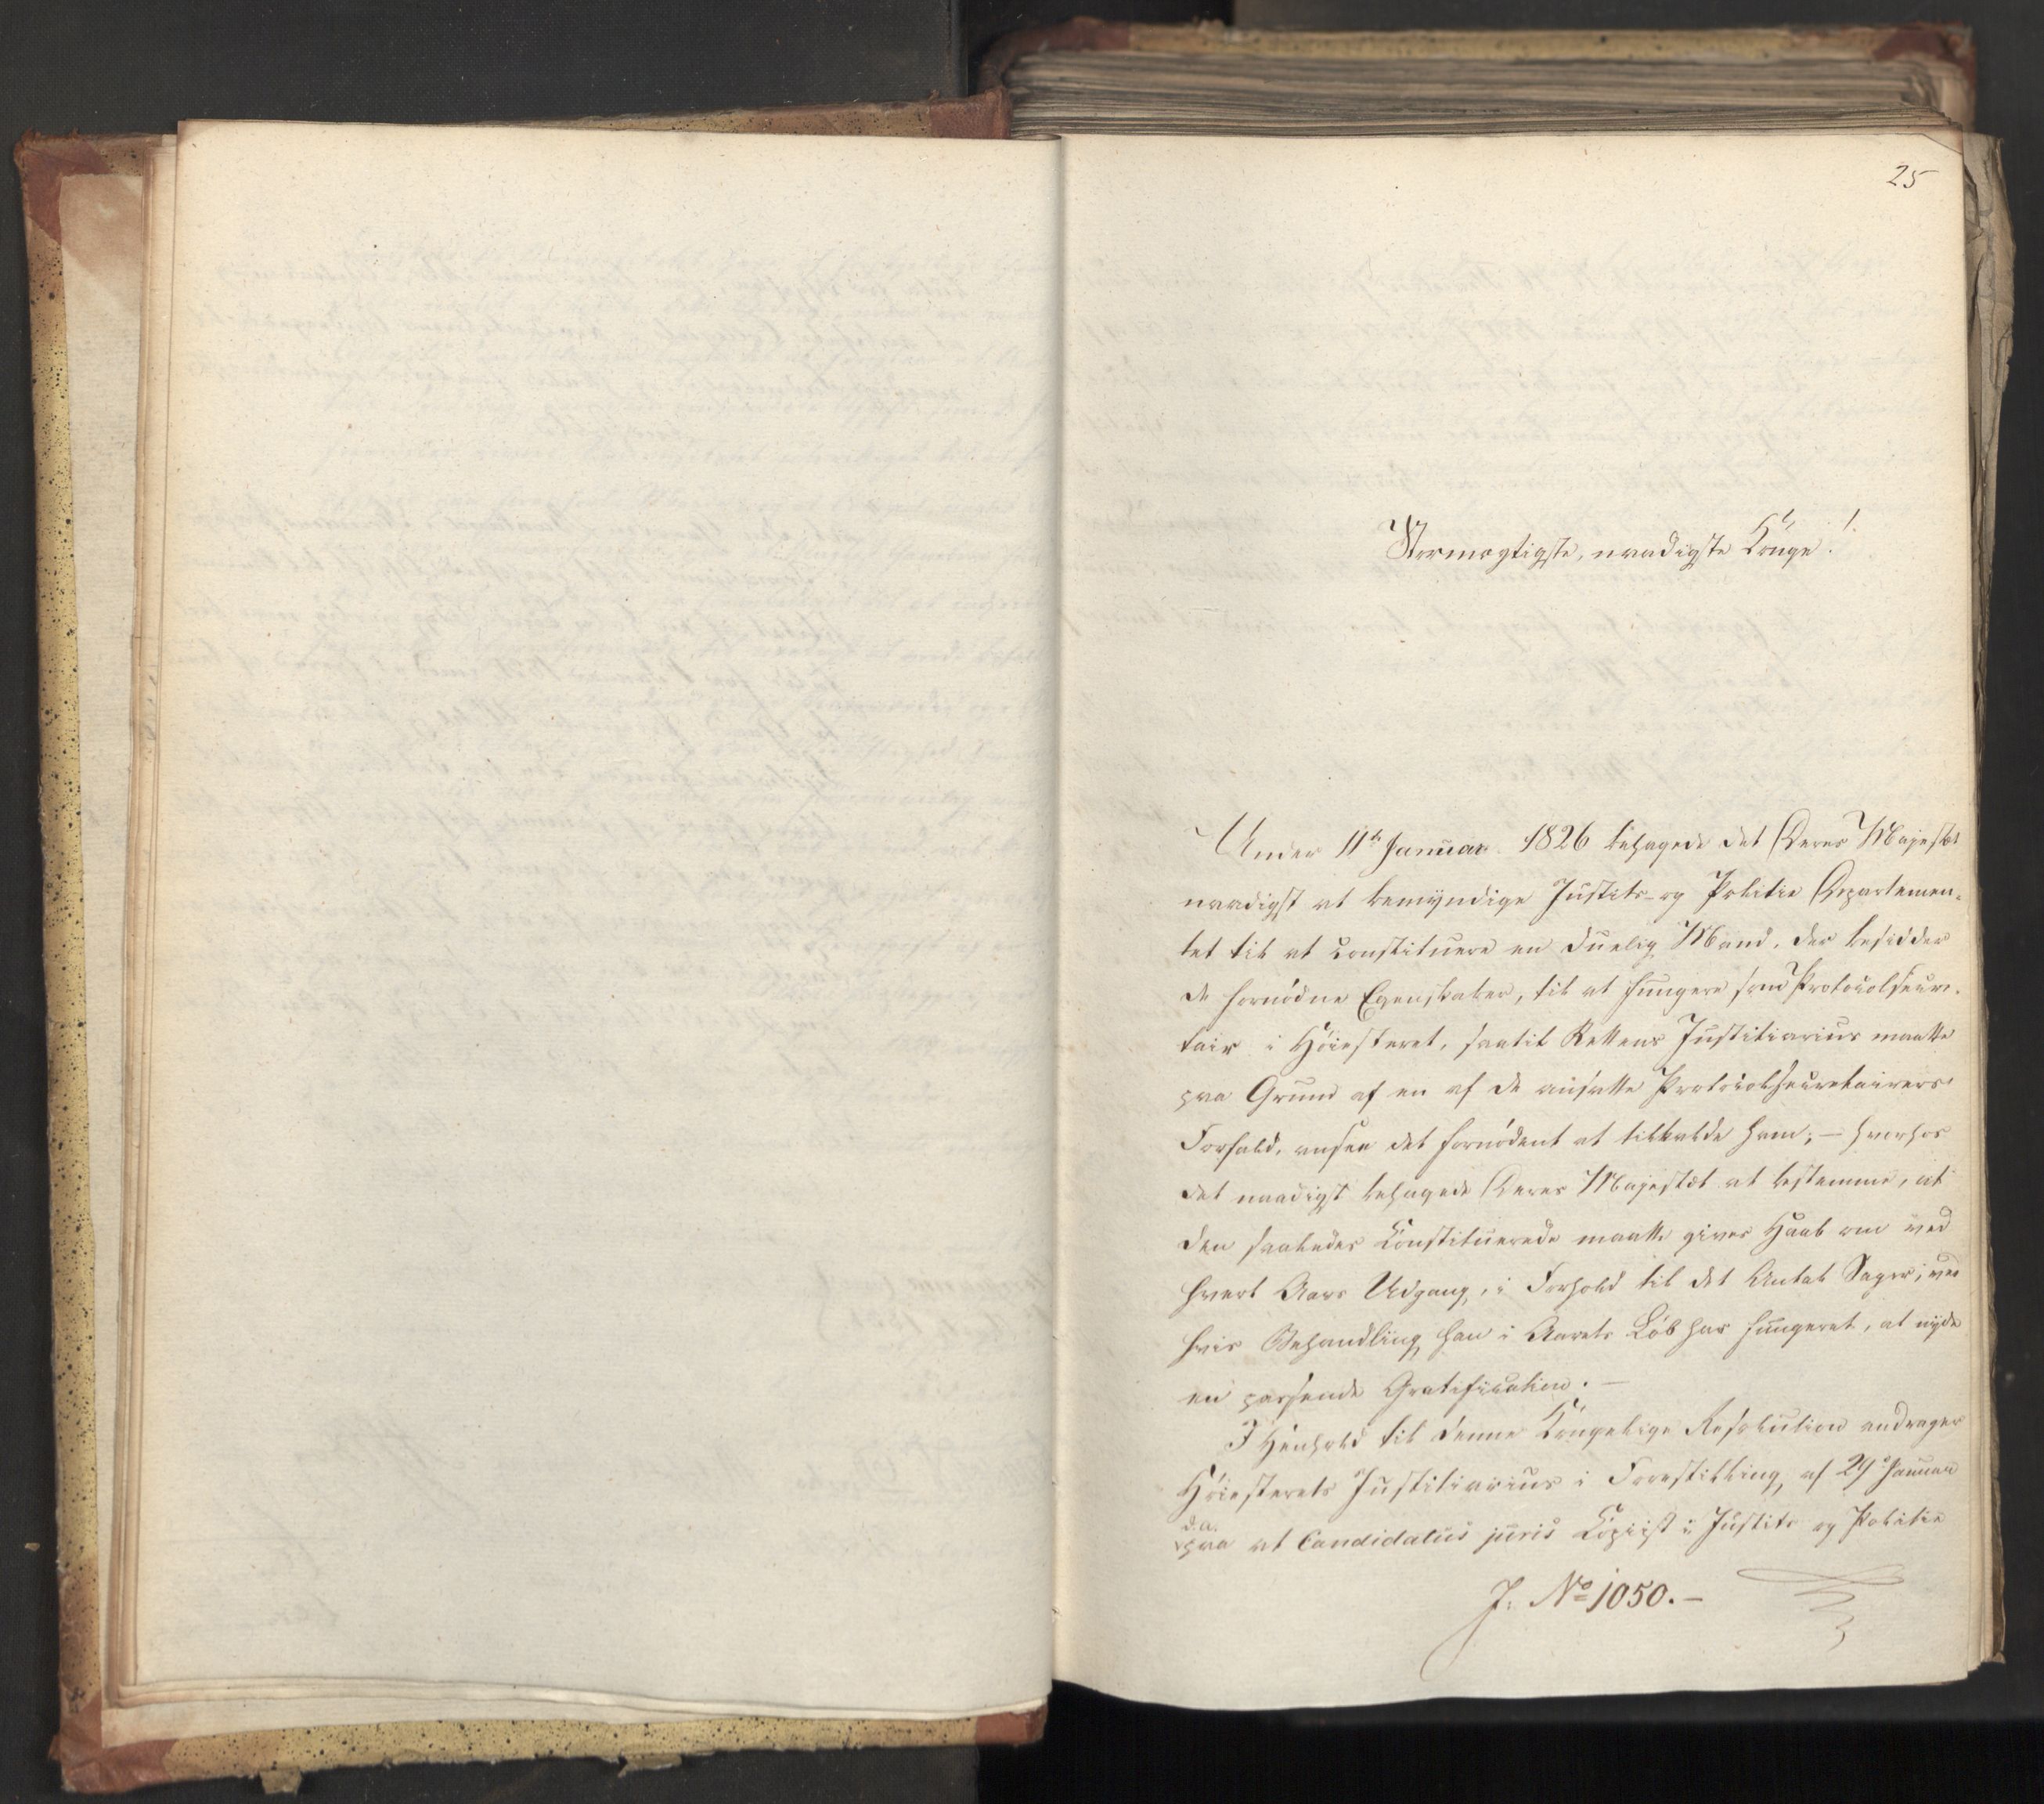 25
Stormægtigste, naadigste Konge!
Under 11te Januar 1826 behagede det Deres Majestæt
naadigst at bemyndige Justits- og Politie Departemen-
tet til at constituere en duelig Mand, der besidder
de fornødne Egenskaber, til at fungere som Protocolsecre-
tair i Høiesteret, saatit Rettens Justitiarius maatte
paa Grund af en af de ansatte Protocolsecretairers
Forfald, ansee det fornødent at tilkalde ham; – hvorhos
det naadigst behagede Deres Majestæt at bestemme, at
den saaledes Constituerede maatte gives Haab om ved
hvert Aars Udgang, i Forhold til det Antal Sager, ved
hvis Behandling han i Aarets Løb har fungeret, at nyde
en passende Gratification. –
I Henhold til denne Kongelige Resolution andrager
Høiesterets Justitiarius i Forestilling af 29 Januar
d. A.
paa at Candidatus juris Copiist i Justits og Politie
J. No 1050. –